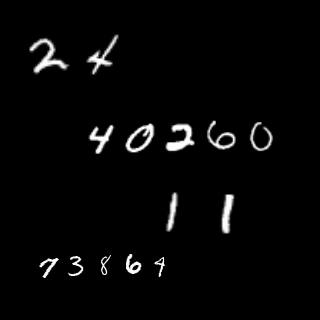 24
40260
11
73864